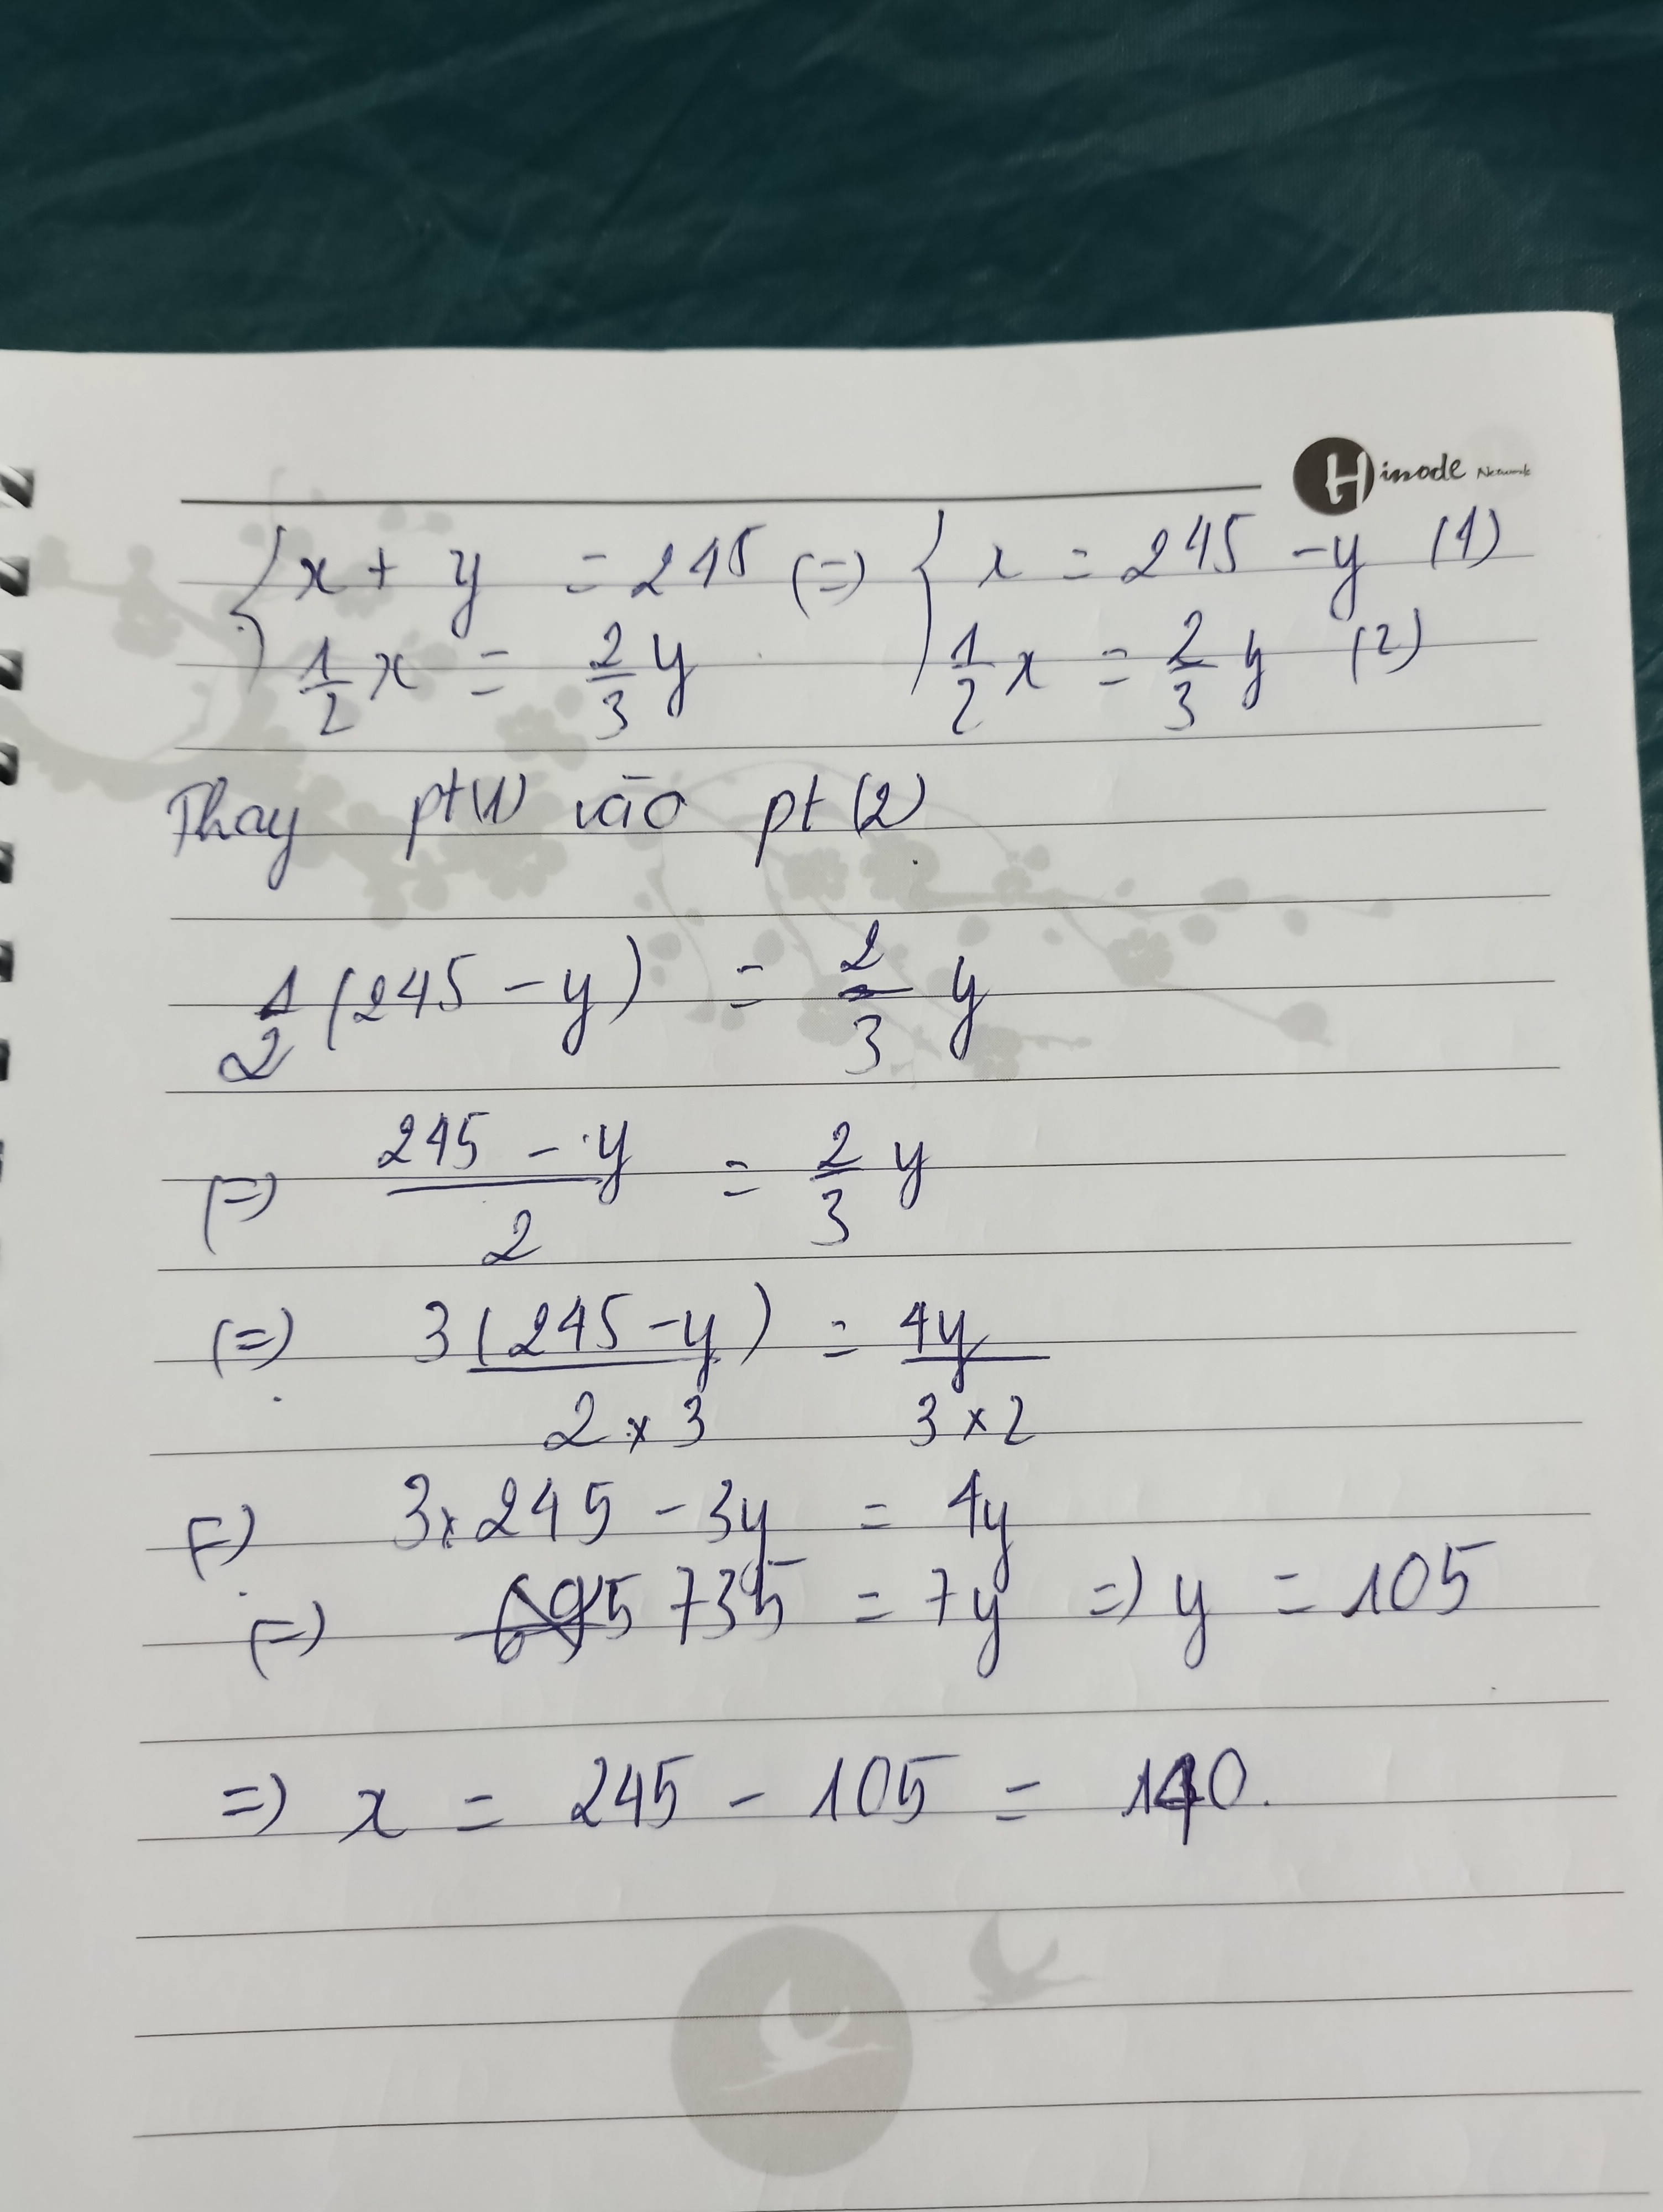 Hinode Network
{ x + y = 245 (=) { x = 245 - y (1)
1/2 x = 2/3 y 1/2 x = 2/3 y (2)
Thay pt(1) vào pt(2)
1/2 (245 - y) = 2/3 y
(=) (245 - y)/2 = 2/3 y
(=) 3(245 - y)/(2 x 3) = 4y/(3 x 2)
(=) 3x245 - 3y = 4y
(=) 735 = 7y => y = 105
=> x = 245 - 105 = 140.